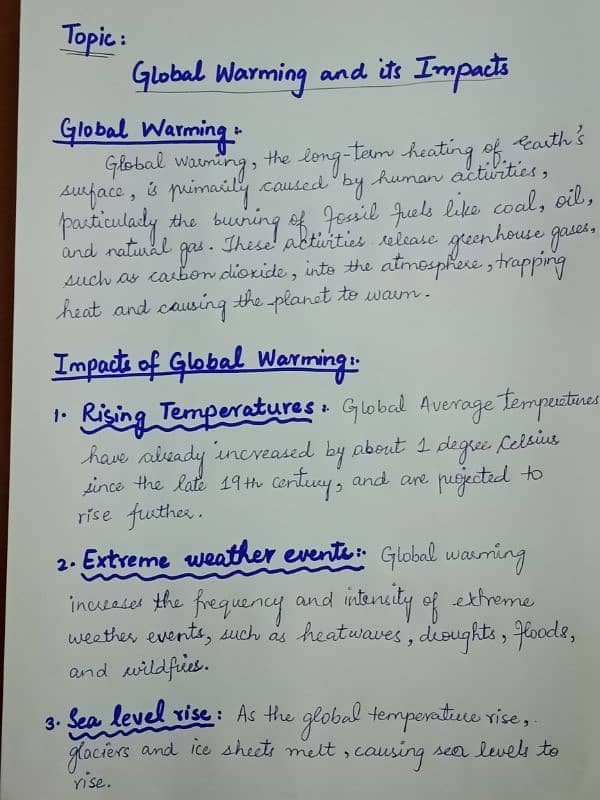 Topic:
Global Warming and its Impacts
Global Warming:-
Global warming, the long-term heating of Earth's
surface, is primarily caused by human activities,
particularly the burning of fossil fuels like coal, oil,
and natural gas. These activities release greenhouse gases,
such as carbon dioxide, into the atmosphere, trapping
heat and causing the planet to warm.
Impacts of Global Warming:-
1. Rising Temperatures:- Global Average temperatures
have already increased by about 1 degree Celsius
since the late 19th century, and are projected to
rise further.
2. Extreme weather events:- Global warming
increases the frequency and intensity of extreme
weether events, such as heatwaves, droughts, floods,
and wildfires.
3. Sea level rise: As the global temperature rise,
glaciers and ice sheets melt, causing sea levels to
rise.